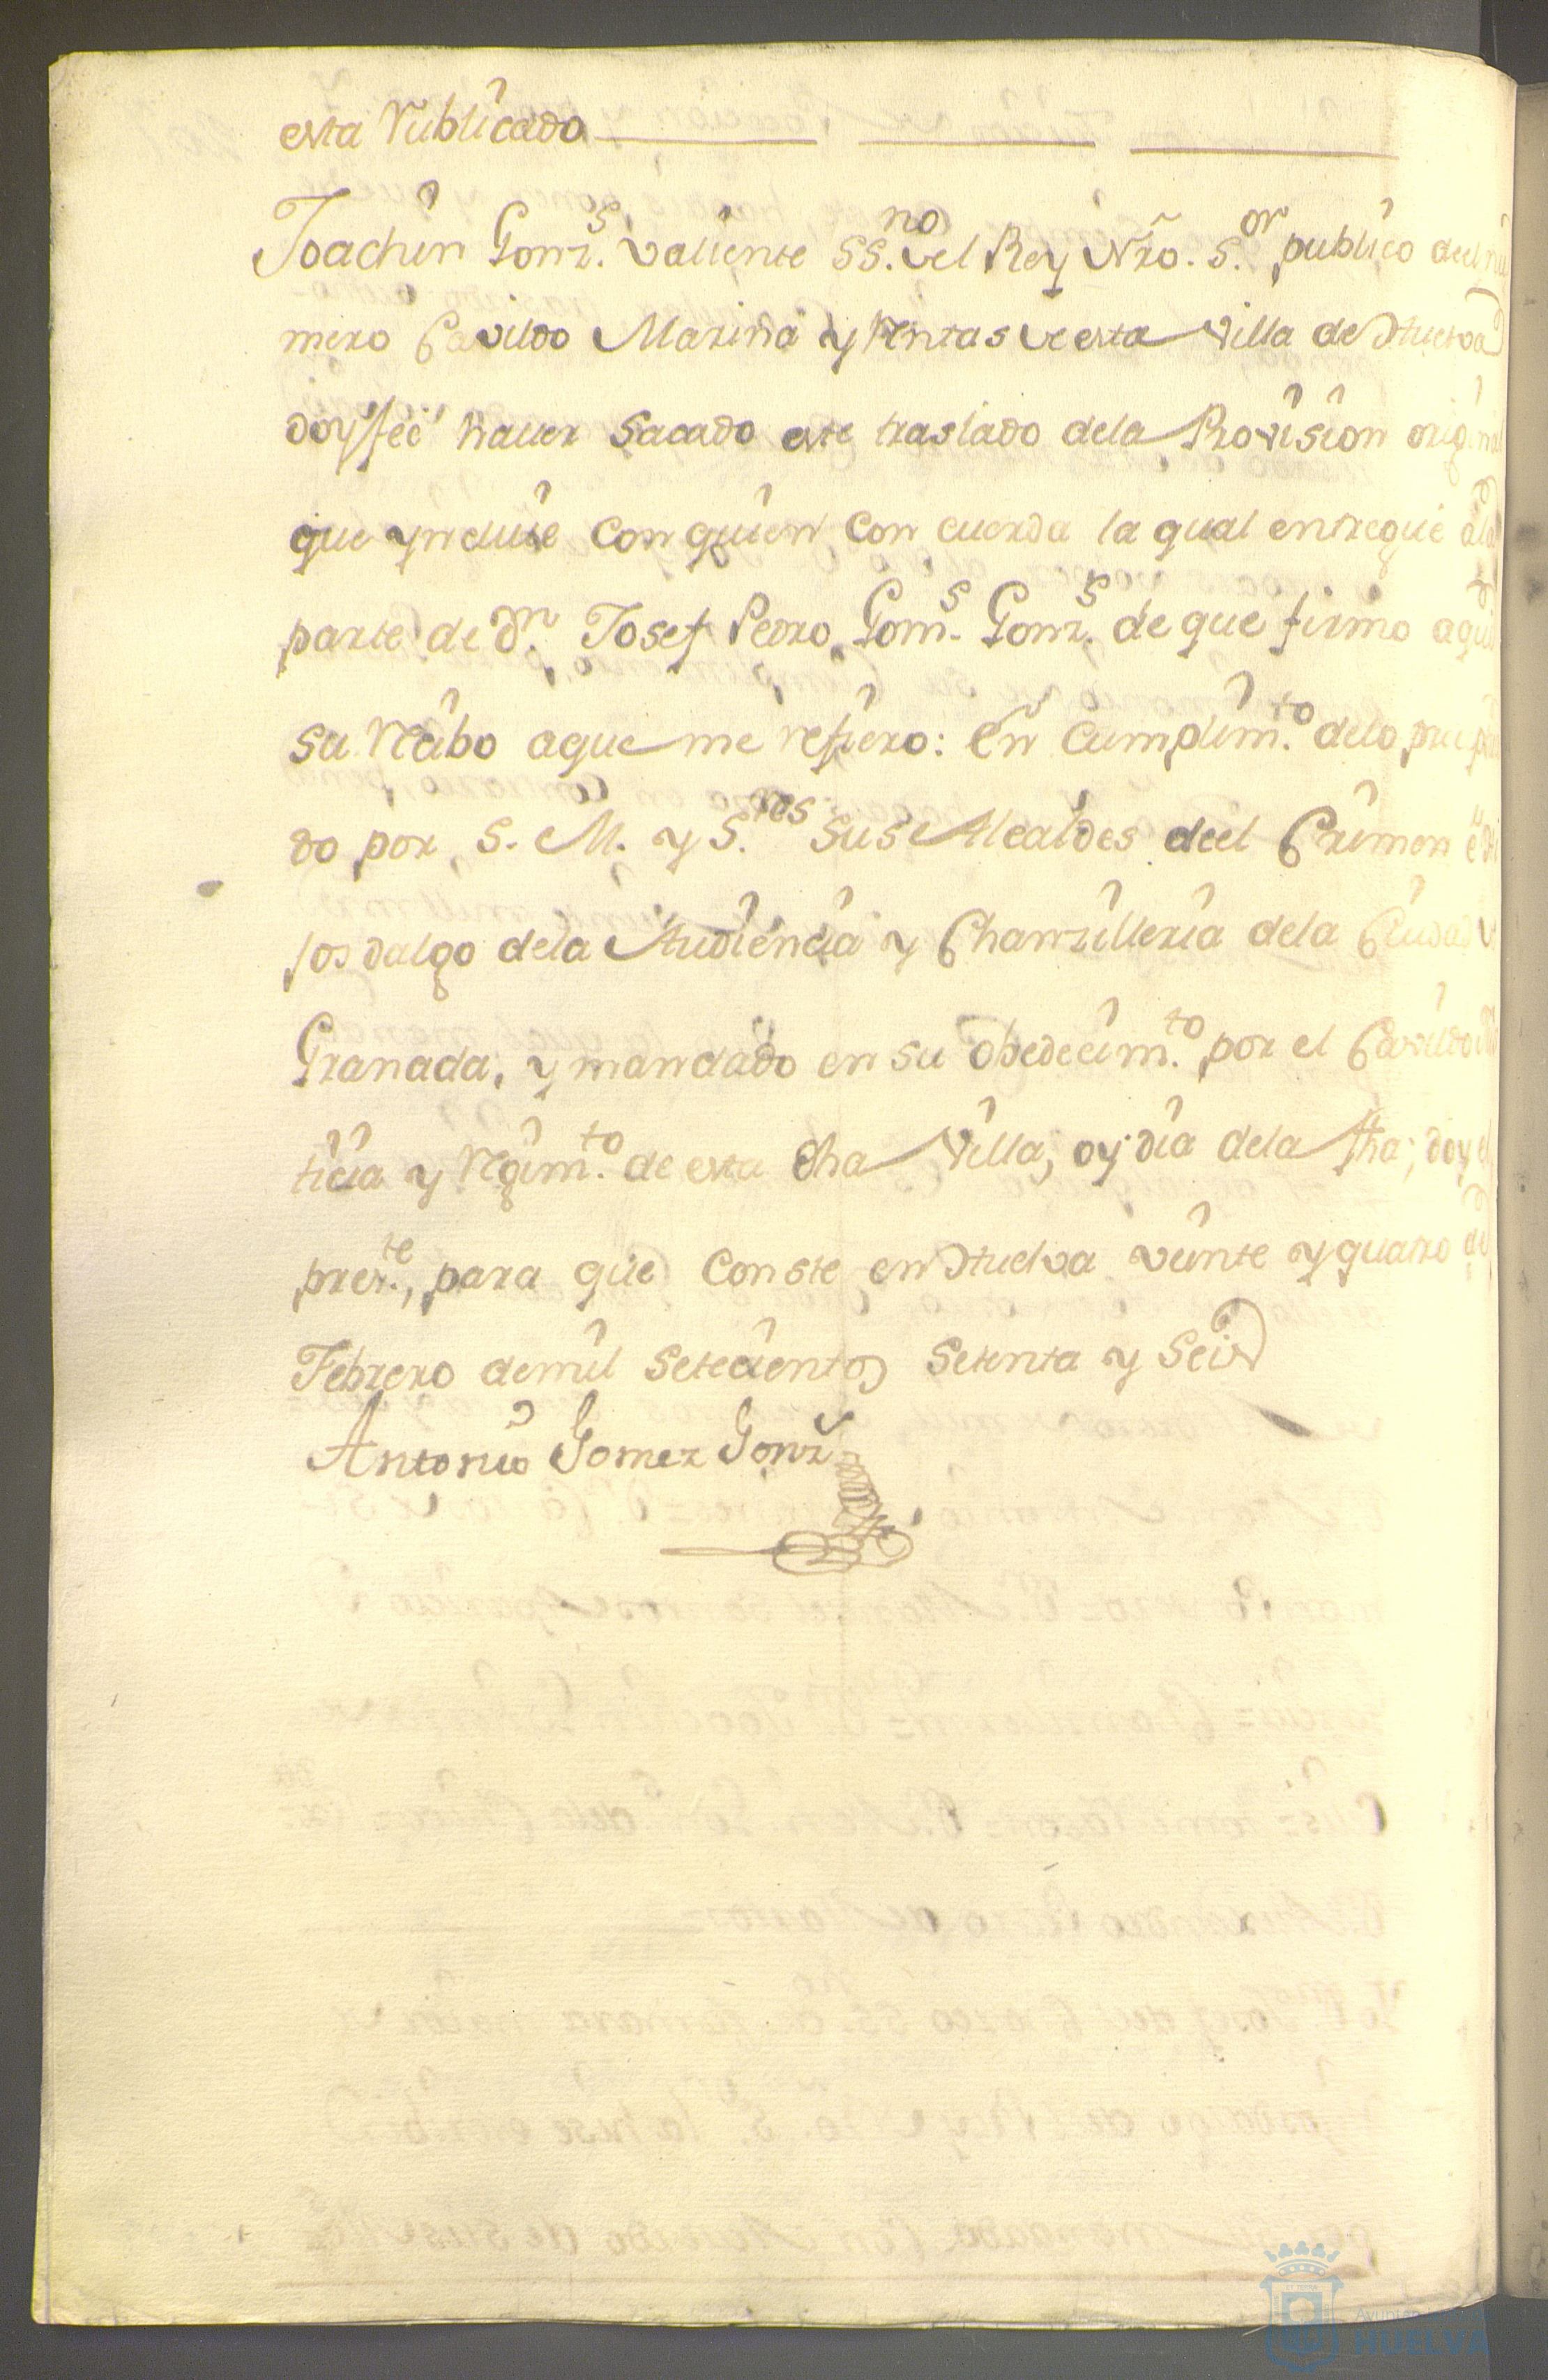 esta Rubricado
Joachin Gonz.s Valiente SS.no del Rey Nrõ. S.or publico del nu
mero Cavildo Marina y Rentas de esta Villa de Huelva
doy feé haver Sacado este traslado dela Provision origi.nal
que yncluie con quien con cuerda la qual entregue ala
parte de Dn. Josef Pedro Gom.s Gonz.s de que firmo aqui
su Recibo aque me refiero: En cumplim.to delo pre
do por S. M. y S.res Sus Alcaldes deel Crimen é di
jos dalgo dela Audiencia y Chanzilleria dela Ciudad
Granada, y mandado en su obedecim.to por el Cavildo
ticia y Regim.to de esta dha Villa, oy dia dela fha; doy el
prest.te, para que Conste en Huelva veinte y quatro de
Febrero demil Setecientos Setenta y Seis
Antonio Gomez Gonz
Ayun
HUELVA